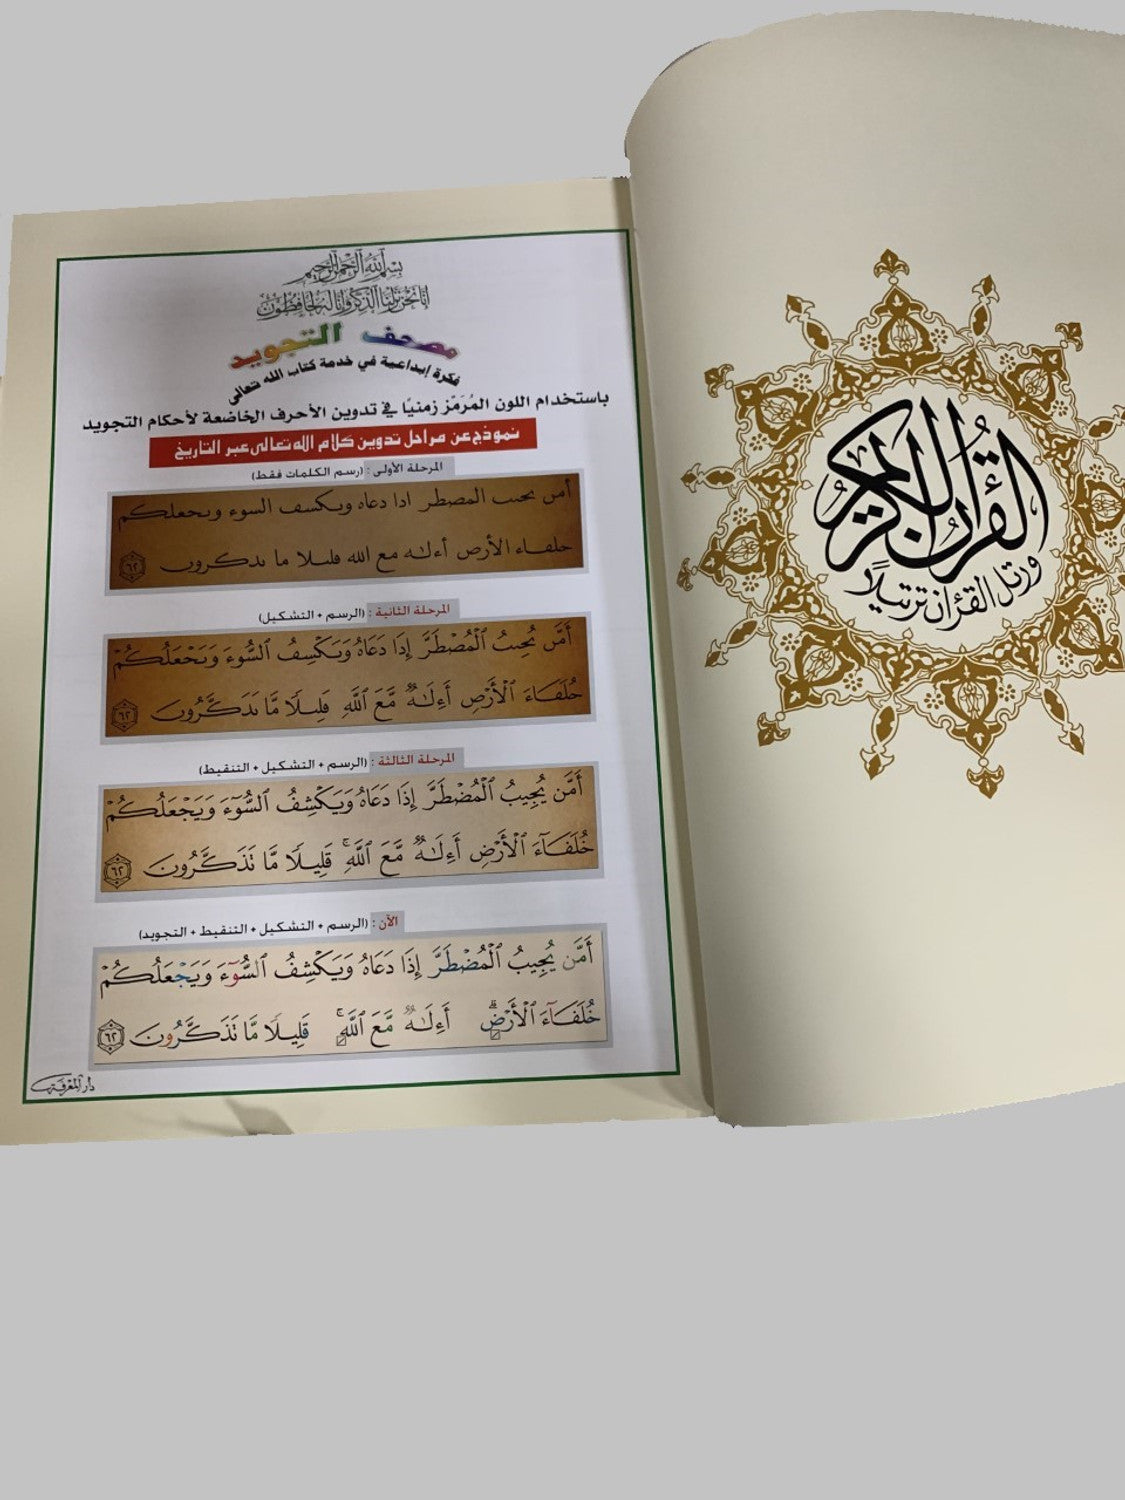 بِسْمِ ٱللَّهِ ٱلرَّحْمَٰنِ ٱلرَّحِيمِ
إِنَّا نَحْنُ نَزَّلْنَا ٱلذِّكْرَ وَإِنَّا لَهُ لَحَافِظُونَ
مصحف التجويد
فكرة إبداعية في خدمة كتاب الله تعالى
باستخدام اللون المُرَمّز زمنيًا في تدوين الأحرف الخاضعة لأحكام التجويد
نموذج عن مراحل تدوين كلام الله تعالى عبر التاريخ
المرحلة الأولى : (رسم الكلمات فقط)
أمں ىحىٮ المصطر ادا دعاه وىكسڡ السوء وىحعلكم
حلڡاء الأرص أءلـٰه مع الله ڡلىلا ما ىدكروں ٦٢
المرحلة الثانية : (الرسم + التشكيل)
أَمَّں ىُحِىٮُ ٱلْمُصْطَرَّ إِدَا دَعَاهُ وَىَكْسِڡُ ٱلسُّوءَ وَىَحْعَلُكُمْ
حُلَڡَاءَ ٱلْأَرْصِ أَءِلَـٰهٌ مَّعَ ٱللَّهِ ڡَلِىلًا مَّا ىَدَكَّرُوںَ ٦٢
المرحلة الثالثة : (الرسم + التشكيل + التنقيط)
أَمَّن يُجِيبُ ٱلْمُضْطَرَّ إِذَا دَعَاهُ وَيَكْشِفُ ٱلسُّوٓءَ وَيَجْعَلُكُمْ
خُلَفَآءَ ٱلْأَرْضِ أَءِلَـٰهٌ مَّعَ ٱللَّهِ ۚ قَلِيلًا مَّا تَذَكَّرُونَ ٦٢
الآن : (الرسم + التشكيل + التنقيط + التجويد)
أَمَّن يُجِيبُ ٱلْمُضْطَرَّ إِذَا دَعَاهُ وَيَكْشِفُ ٱلسُّوٓءَ وَيَجْعَلُكُمْ
خُلَفَآءَ ٱلْأَرْضِ ۗ أَءِلَـٰهٌ مَّعَ ٱللَّهِ ۚ قَلِيلًا مَّا تَذَكَّرُونَ ٦٢
دار المعرفة
القرآن الكريم
ورتل القرءان ترتيلا